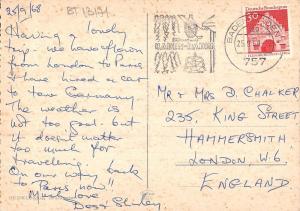 25/9/68
BT 13191
Having a lovely
trip - we have flown
from London to Paris
& have hired a car
to tour Germany.
The weather is
not too good - but
it doesn't matter
too much for
travelling.
On our way back
to Paris now"
Much love
Shirley.
BADEN-BADEN
757
30
Deutsche Bundespost
MR & MRS D CHALKER
235, KING STREET
HAMMERSMITH
LONDON, W6.
ENGLAND.